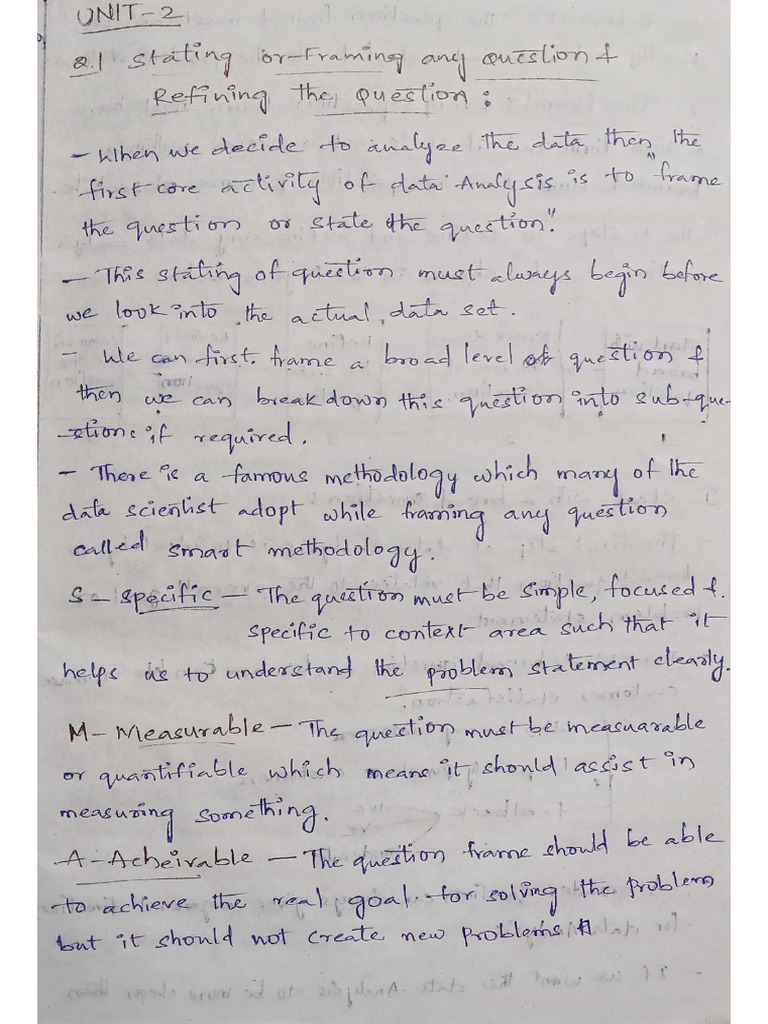 UNIT-2
2.1 Stating or-Framing any question &
Refining the Question :
- When we decide to analyze the data then, the
first core activity of data Analysis is to "frame
the question or state the question".
- This stating of question must always begin before
we look into the actual data set.
- We can first frame a broad level of question &
then we can breakdown this question into sub-que-
-stions if required.
- There is a famous methodology which many of the
data scientist adopt while framing any question
called smart methodology.
S - Specific - The question must be simple, focused &
specific to context area such that it
helps us to understand the problem statement clearly.
M- Measurable - The question must be measuarable
or quantifiable which means it should assist in
measuring something.
A-Acheivable - The question frame should be able
to achieve the real goal for solving the problem
but it should not create new problems